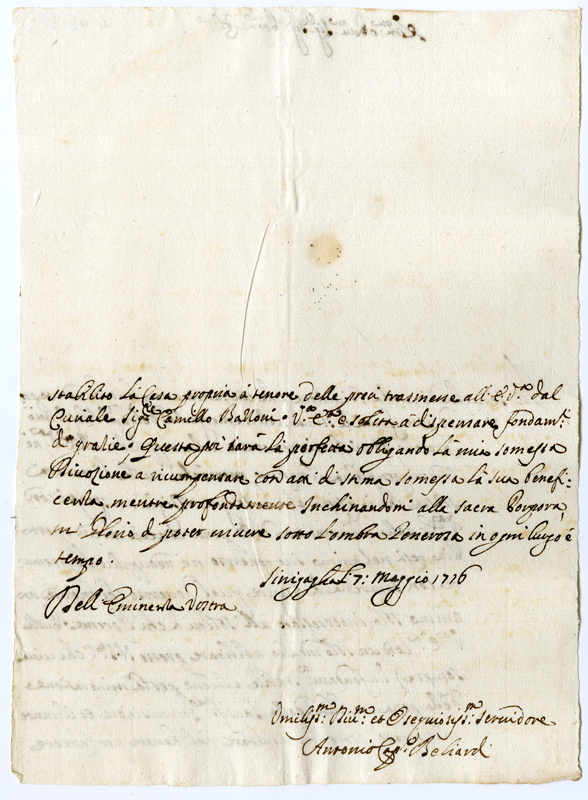 stabilito La Casa propria à tenore delle preci trasmesse all'E. V.ra dal
Curiale Sig.re Camillo Balloni. V.ra E.za è solita à dispensare fondam.ti
di gratie. Questa poi sarà là perfecta obligando La mia somessa
Divozione a ricompensare con atti di stima somessa la sua benefi-
cenza, mentre profondamente Inchinandomi alla sacra Porpora
mi Glorio di poter vivere sotto L'ombra Generosa in ogni luogo e
tempo.
Sinigaglia Li 7. Maggio 1716
Dell'Eminenza Vostra
Umiliss.mo Div.mo et Osequiosiss.mo servidore
Antonio Beliardi